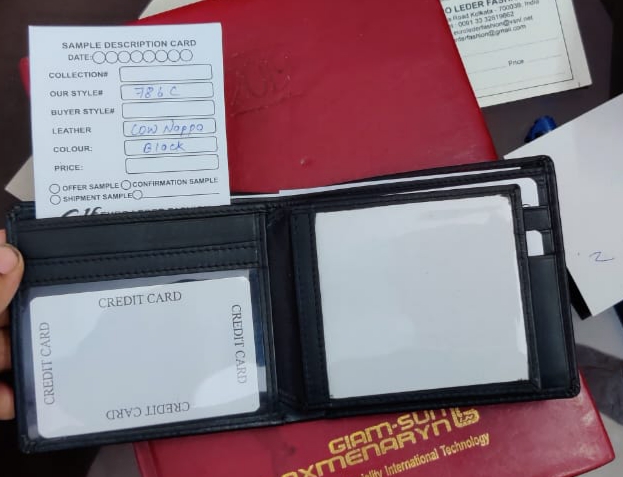 SAMPLE DESCRIPTION CARD
DATE:
COLLECTION#
OUR STYLE# 786 C
BUYER STYLE#
LEATHER COW Nappa
COLOUR: Black
PRICE:
OFFER SAMPLE CONFIRMATION SAMPLE
SHIPMENT SAMPLE
O LEDER FASH
Road Kolkata - 700039, India
: 0091 33 32619862
eurolederfashion@vsnl.net
lederfashion@gmail.com
Price
CREDIT CARD
CREDIT CARD
CREDIT CARD
CREDIT CARD
2
GIAM-SUN
XMENARYN
lity International Technology